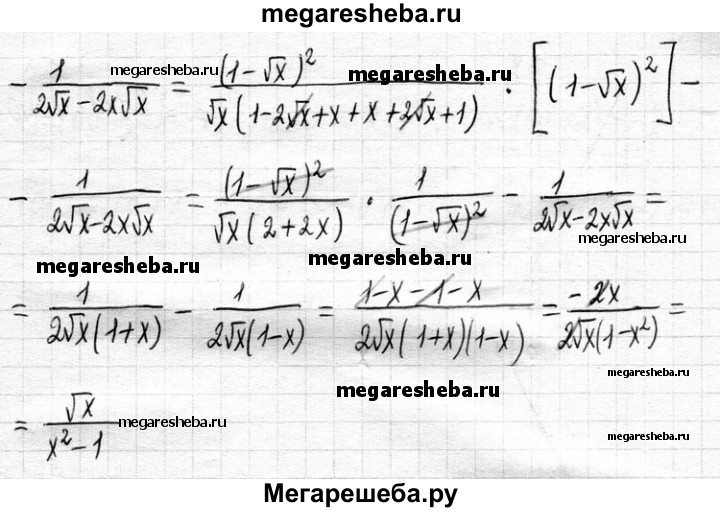 megaresheba.ru
- 1/(2√x - 2x√x) = (1-√x)²/(√x(1-2√x+x+x+2√x+1)) · [(1-√x)²] -
megaresheba.ru megaresheba.ru
- 1/(2√x-2x√x) = (1-√x)²/(√x(2+2x)) · 1/(1-√x)² - 1/(2√x-2x√x) =
megaresheba.ru megaresheba.ru megaresheba.ru
= 1/(2√x(1+x)) - 1/(2√x(1-x)) = (1-x-1-x)/(2√x(1+x)(1-x)) = -2x/(2√x(1-x²)) =
megaresheba.ru megaresheba.ru
= √x/(x²-1)
megaresheba.ru megaresheba.ru
Мегарешеба.ру